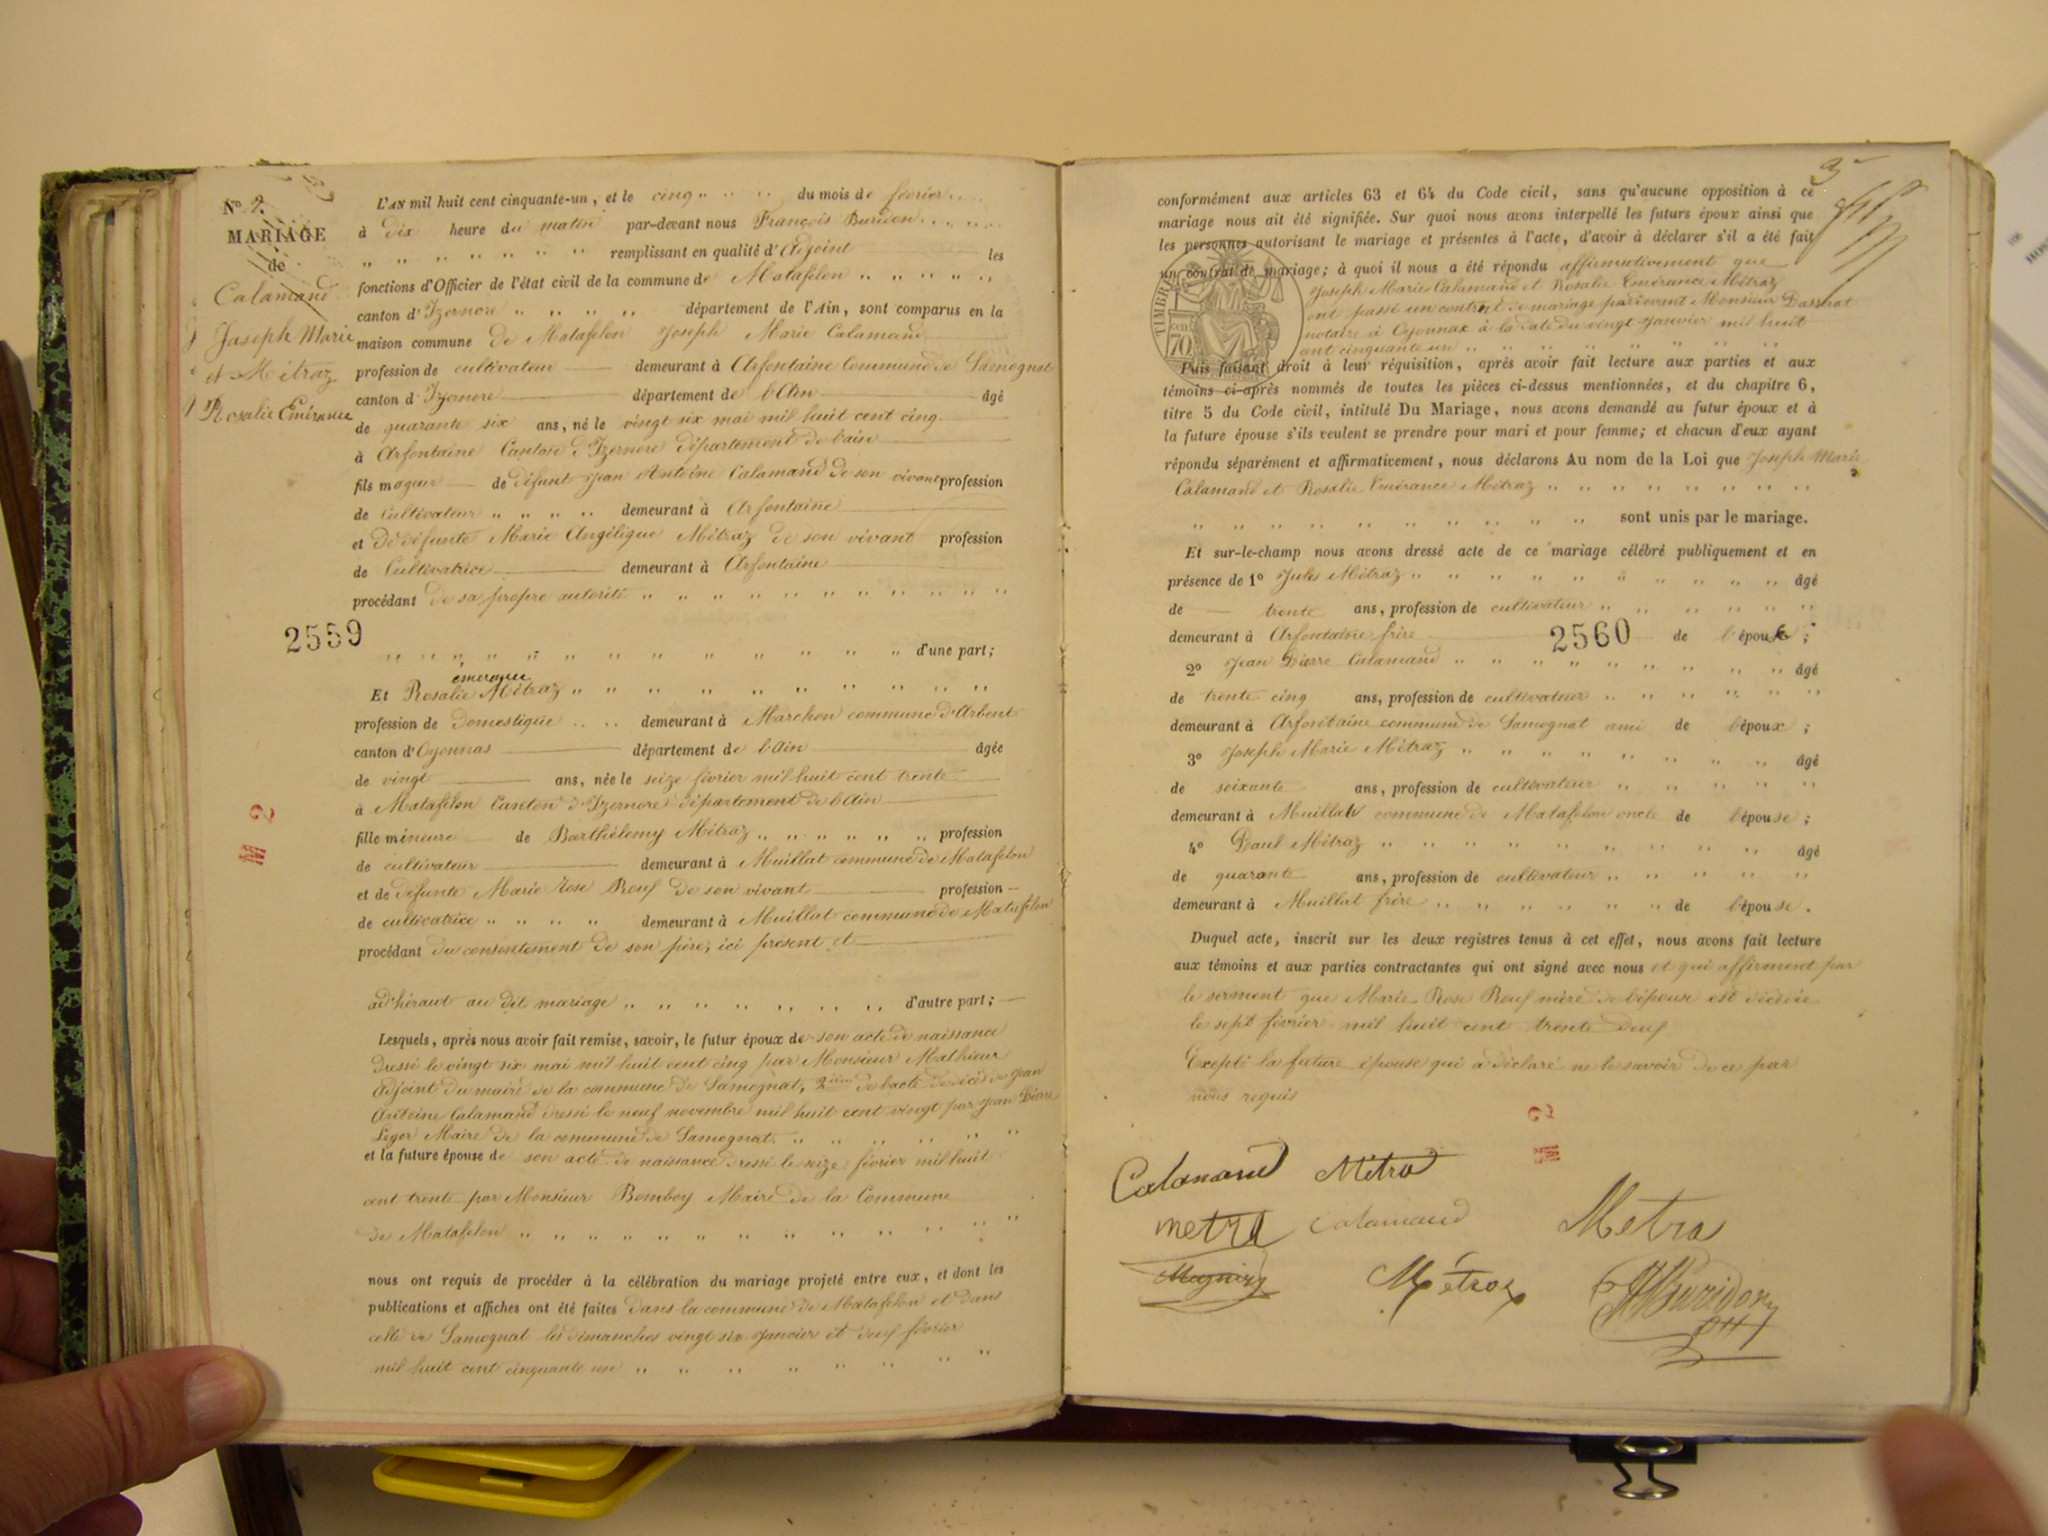 No 2.
MARIAGE
de
Calamand
Joseph Marie
et Métraz
Rosalie Emérance
L'AN mil huit cent cinquante-un, et le cinq du mois de février
à dix heure du matin par-devant nous François Buridon
remplissant en qualité d'Adjoint les
fonctions d'Officier de l'état civil de la commune de Matafelon
canton d'Izernore département de l'Ain, sont comparus en la
maison commune de Matafelon Joseph Marie Calamand
profession de cultivateur demeurant à Arfontaine Commune de Samognat
canton d'Izernore département de l'Ain âgé
de quarante six ans, né le vingt six mai mil huit cent cinq
à Arfontaine Canton d'Izernore département de l'ain
fils mageur de défunt Jean Antoine Calamand de son vivant profession
de Cultivateur demeurant à Arfontaine
et de défunte Marie Angélique Métraz de son vivant profession
de Cultivatrice demeurant à Arfontaine
procédant de sa propre autorité
2559
d'une part;
émerance
Et Rosalie Métraz
profession de Domestique demeurant à Marchon commune d'Arbent
canton d'Oyonnas département de l'Ain âgée
de vingt ans, née le seize février mil huit cent trente
à Matafelon Canton d'Izernore département de l'Ain
fille mineure de Barthélemy Métraz profession
de cultivateur demeurant à Muillat commune de Matafelon
et de défunte Marie Rose Reuf de son vivant profession
de cultivatrice demeurant à Muillat commune de Matafelon
procédant du consentement de son père, ici present et
ad'hérant au dit mariage d'autre part;
Lesquels, après nous avoir fait remise, savoir, le futur époux de son acte de naissance
dressé le vingt six mai mil huit cent cinq par Monsieur Mathieur
Adjoint du maire de la commune de Samognat, 2ième de l'acte de décès de Jean
Antoine Calamand dressé le neuf novembre mil huit cent vingt par Jean Pierre
Leger Maire de la commune de Samognat
et la future épouse de son acte de naissance dressé le seize février mil huit
cent trente par Monsieur Bomboy Maire de la Commune
de Matafelon
nous ont requis de procéder à la célébration du mariage projeté entre eux, et dont les
publications et affiches ont été faites dans la commune de Matafelon et dans
celle de Samognat les dimanches vingt six Janvier et deuf février
mil huit cent cinquante un
M 2
3
conformément aux articles 63 et 64 du Code civil, sans qu'aucune opposition à ce
mariage nous ait été signifiée. Sur quoi nous avons interpellé les futurs époux ainsi que
les personnes autorisant le mariage et présentes à l'acte, d'avoir à déclarer s'il a été fait
un contrat de mariage; à quoi il nous a été répondu affirmativement que
Joseph Marie Calamand et Rosalie Emérance Métraz
ont passé un contrat de mariage par devant Monsieur Darmat
notaire à Oyonnax à la date du vingt Janvier mil huit
cent cinquante un
TIMBRE
70
Puis faisant droit à leur réquisition, après avoir fait lecture aux parties et aux
témoins ci-après nommés de toutes les pièces ci-dessus mentionnées, et du chapitre 6,
titre 5 du Code civil, intitulé Du Mariage, nous avons demandé au futur époux et à
la future épouse s'ils veulent se prendre pour mari et pour femme; et chacun d'eux ayant
répondu séparément et affirmativement, nous déclarons Au nom de la Loi que Joseph Marie
Calamand et Rosalie Emérance Métraz
sont unis par le mariage.
Et sur-le-champ nous avons dressé acte de ce mariage célébré publiquement et en
présence de 1º Jules Métraz âgé
de trente ans, profession de cultivateur
demeurant à Arfontaine frère 2560 de l'épouse;
2º Jean Pierre Calamand âgé
de trente cinq ans, profession de cultivateur
demeurant à Arfontaine commune de Samognat ami de l'époux;
3º Joseph Marie Métraz âgé
de soixante ans, profession de cultivateur
demeurant à Muillat commune de Matafelon oncle de l'épouse;
4º Paul Métraz âgé
de quarante ans, profession de cultivateur
demeurant à Muillat frère de l'épouse.
Duquel acte, inscrit sur les deux registres tenus à cet effet, nous avons fait lecture
aux témoins et aux parties contractantes qui ont signé avec nous et qui affirment par
le serment que Marie Rose Reuf mère de l'épouse est décédée
le sept février mil huit cent trente deuf
Excepté la future épouse qui a déclaré ne le savoir de ce par
nous requis
2 M
Calamand Métra
metra calamand Metra
Métraz Buridon